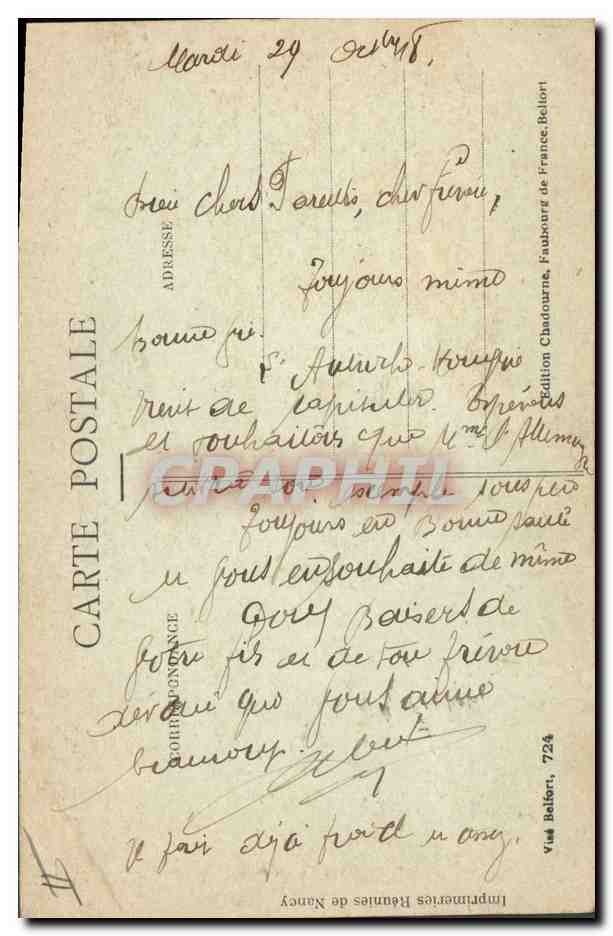 Mardi 29 Octbre 18.
bien chers Parents, cher frérou,
Toujours même
Bonne fri.
L'Autriche-Hongrie
vient de capituler. Espérons
et souhaitons que Mme l'Allemagne
suivra son exemple sous peu
Toujours en Bonne santé
vous en souhaite de même
Doux Baisers de
Votre fils et de ton frérou
dévoué qui vous aime
beaucoup.
Il fait déjà froid
CARTE POSTALE
ADRESSE
CORRESPONDANCE
Edition Chadourne, Faubourg de France, Belfort
Visé Belfort, 724
Imprimeries Réunies de Nancy
GRAPHIL